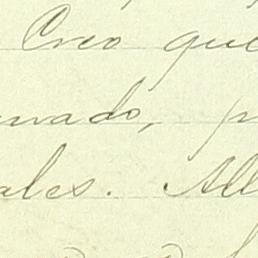 Creo que
vado, p
ales. All